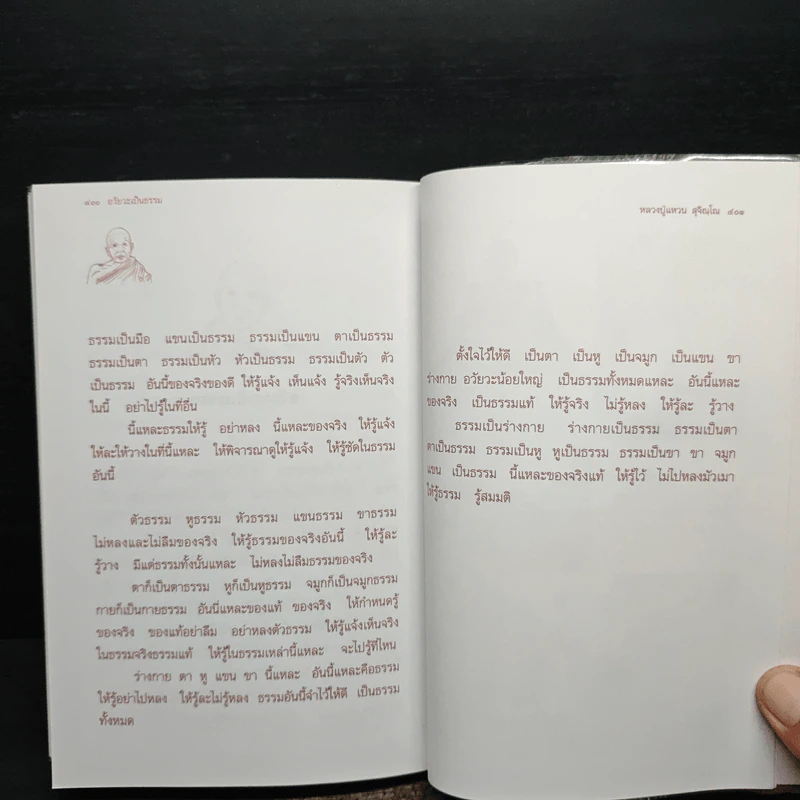 ๔๐๐ อวัยวะเป็นธรรม
ธรรมเป็นมือ แขนเป็นธรรม ธรรมเป็นแขน ตาเป็นธรรม
ธรรมเป็นตา ธรรมเป็นหัว หัวเป็นธรรม ธรรมเป็นตัว ตัว
เป็นธรรม อันนี้ของจริงของดี ให้รู้แจ้ง เห็นแจ้ง รู้จริงเห็นจริง
ในนี้ อย่าไปรู้ในที่อื่น
นี้แหละธรรมให้รู้ อย่าหลง นี้แหละของจริง ให้รู้แจ้ง
ให้ละให้วางในที่นี้แหละ ให้พิจารณาดูให้รู้แจ้ง ให้รู้ชัดในธรรม
อันนี้
ตัวธรรม หูธรรม หัวธรรม แขนธรรม ขาธรรม
ไม่หลงและไม่ลืมของจริง ให้รู้ธรรมของจริงอันนี้ ให้รู้ละ
รู้วาง มีแต่ธรรมทั้งนั้นแหละ ไม่หลงไม่ลืมธรรมของจริง
ตาก็เป็นตาธรรม หูก็เป็นหูธรรม จมูกก็เป็นจมูกธรรม
กายก็เป็นกายธรรม อันนี้แหละของแท้ ของจริง ให้กำหนดรู้
ของจริง ของแท้อย่าลืม อย่าหลงตัวธรรม ให้รู้แจ้งเห็นจริง
ในธรรมจริงธรรมแท้ ให้รู้ในธรรมเหล่านี้แหละ จะไปรู้ที่ไหน
ร่างกาย ตา หู แขน ขา นี้แหละ อันนี้แหละคือธรรม
ให้รู้อย่าไปหลง ให้รู้ละไม่รู้หลง ธรรมอันนี้จำไว้ให้ดี เป็นธรรม
ทั้งหมด
หลวงปู่แหวน สุจิณฺโณ ๔๐๑
ตั้งใจไว้ให้ดี เป็นตา เป็นหู เป็นจมูก เป็นแขน ขา
ร่างกาย อวัยวะน้อยใหญ่ เป็นธรรมทั้งหมดแหละ อันนี้แหละ
ของจริง เป็นธรรมแท้ ให้รู้จริง ไม่รู้หลง ให้รู้ละ รู้วาง
ธรรมเป็นร่างกาย ร่างกายเป็นธรรม ธรรมเป็นตา
ตาเป็นธรรม ธรรมเป็นหู หูเป็นธรรม ธรรมเป็นขา ขา จมูก
แขน เป็นธรรม นี้แหละของจริงแท้ ให้รู้ไว้ ไม่ไปหลงมัวเมา
ให้รู้ธรรม รู้สมมติ